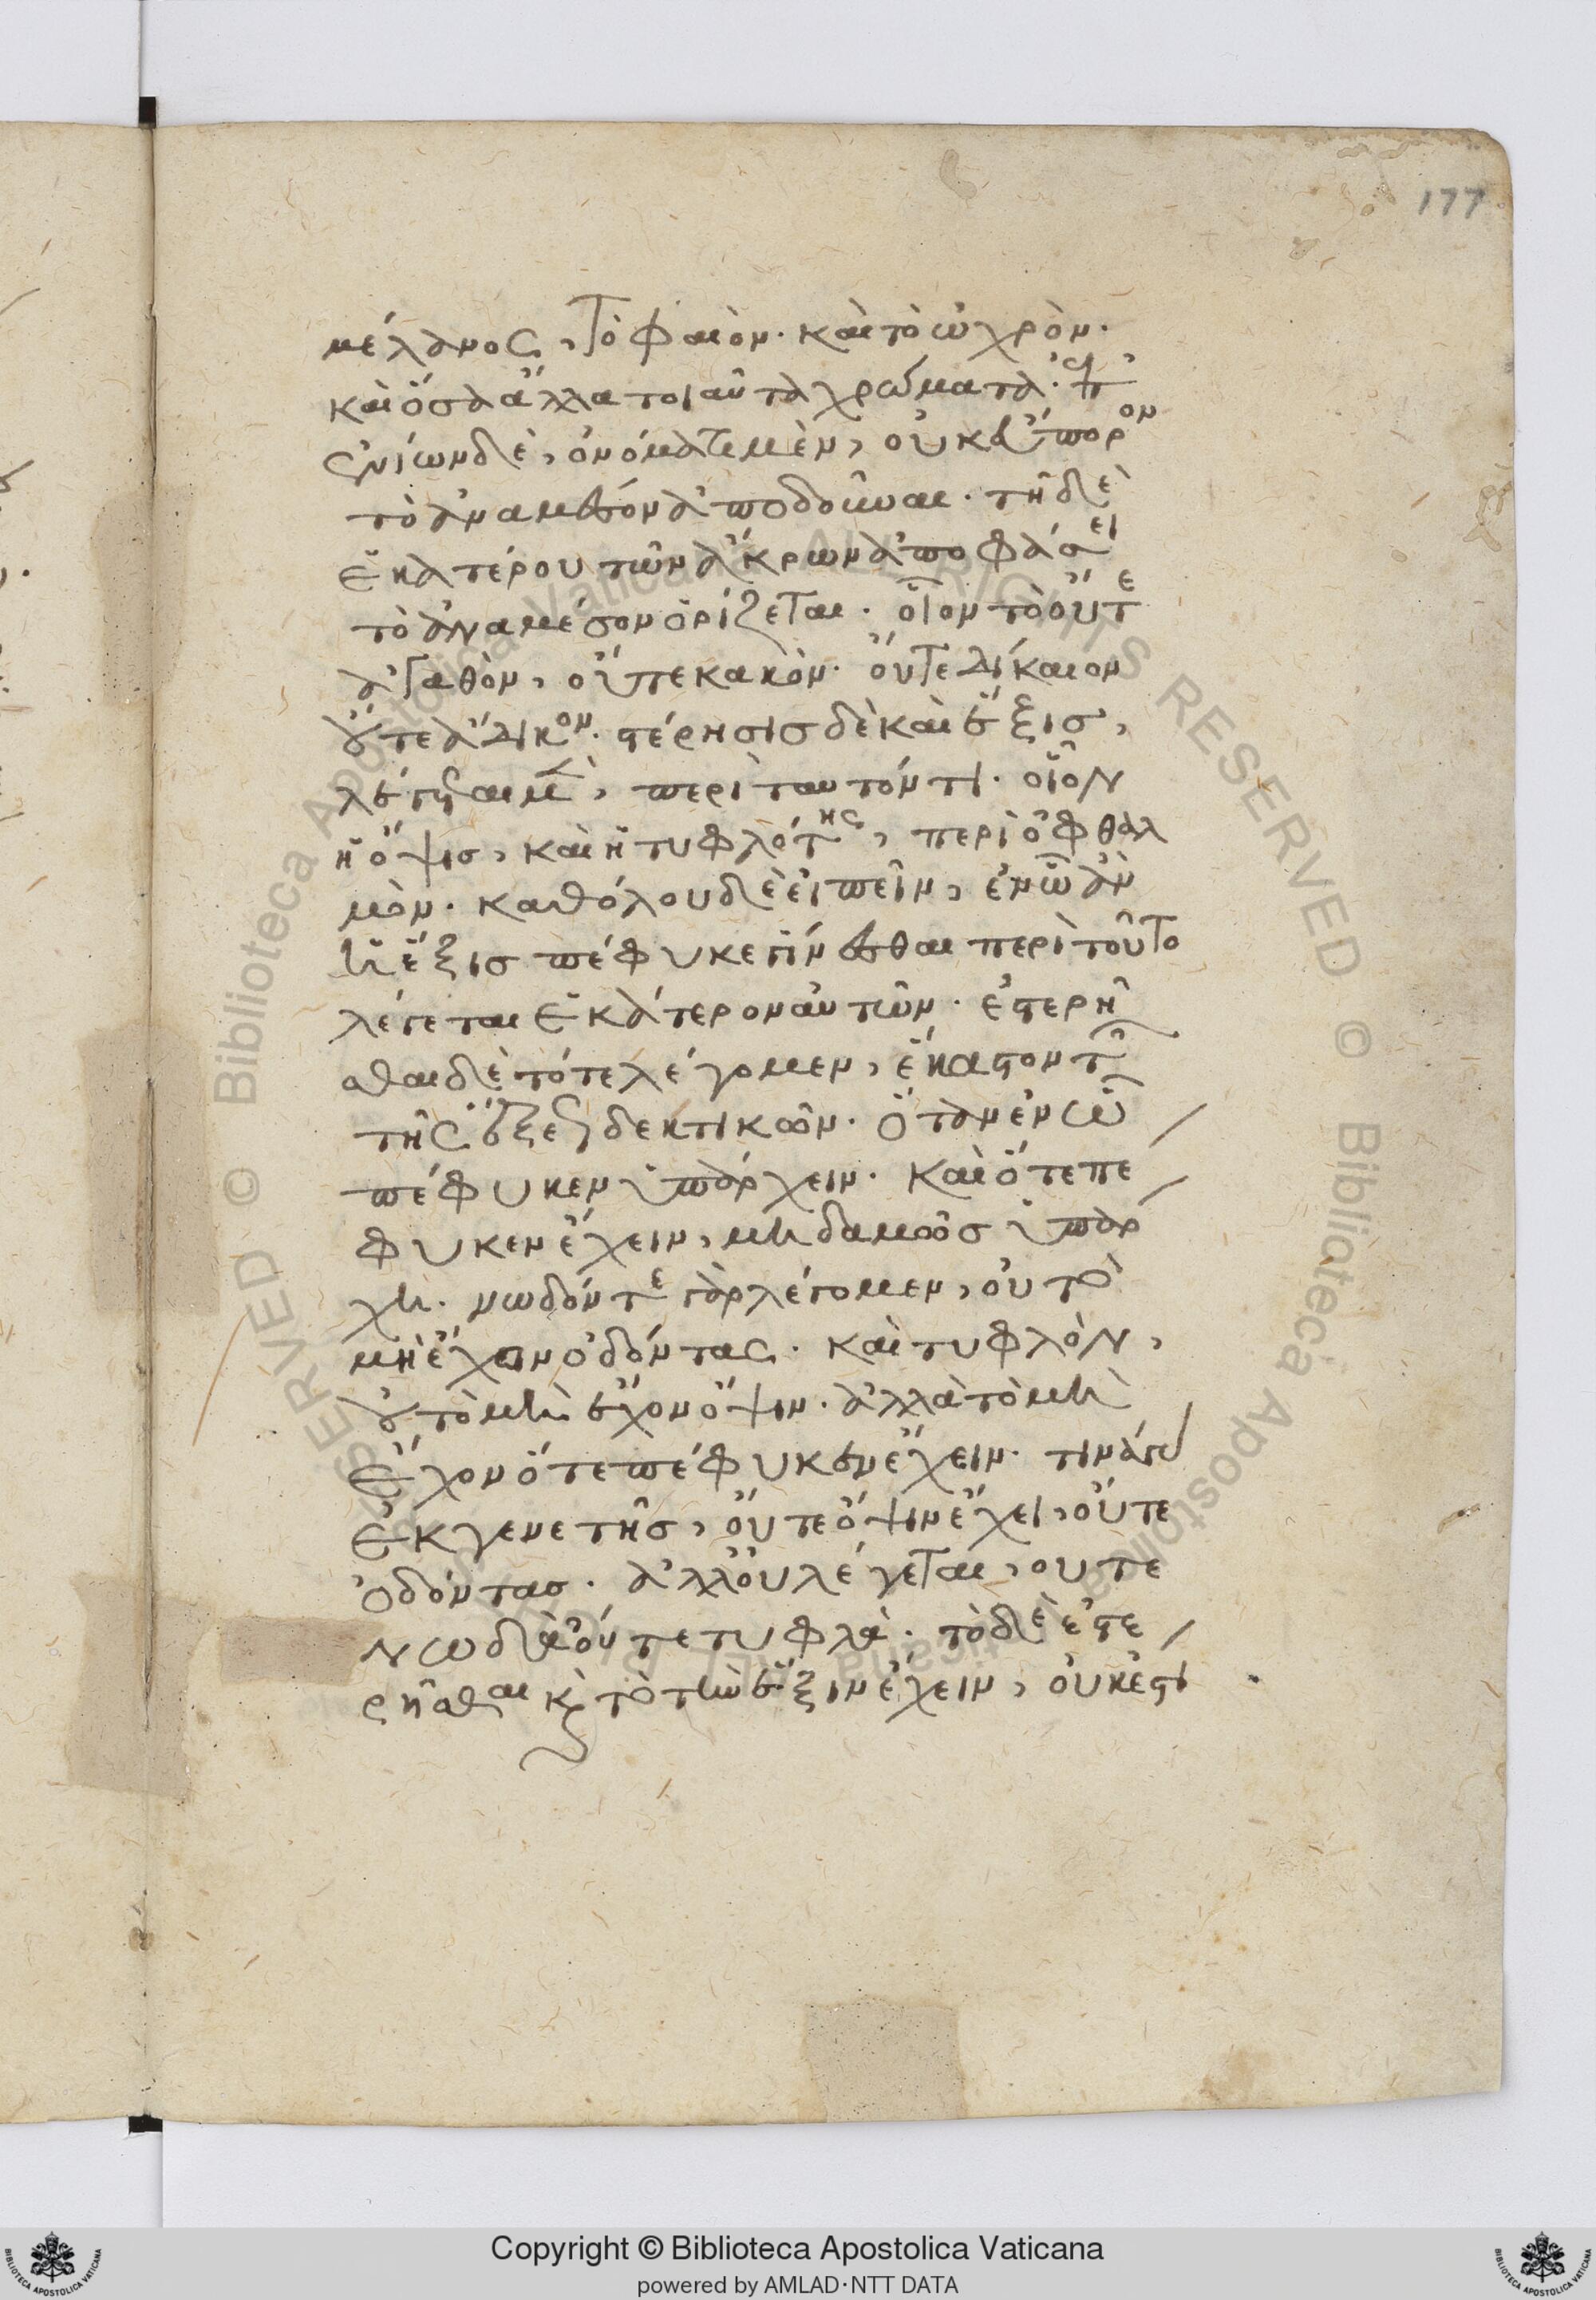 177
μέλανος, τὸ φαιὸν· καὶ τὸ ὠχρὸν·
καὶ ὅσα ἄλλα τοιαῦτα χρώματα· ἐπ'
ἐνίων δὲ, ὀνόματι μὲν, οὐκ εὔπορον
τὸ ἀναμέσον ἀποδοῦναι· τῇ δὲ
ἑκατέρου τῶν ἄκρων ἀποφάσει
τὸ ἀναμέσον ὁρίζεται· οἷον τὸ οὔτε
ἀγαθὸν, οὔτε κακὸν· οὔτε δίκαιον
οὔτε ἄδικον· στέρησις δὲ καὶ ἕξις,
λέγεται μὲν, περὶ ταυτόν τι· οἷον
ἡ ὄψις, καὶ ἡ τυφλότης, περὶ ὀφθαλ
μὸν· καθόλου δὲ εἰπεῖν, ἐν ᾧ ἂν
ἡ ἕξις πέφυκε γίνεσθαι περὶ τοῦτο
λέγεται ἑκάτερον αὐτῶν· ἐστερῆ
σθαι δὲ τότε λέγομεν, ἕκαστον τῶν
τῆς ἕξεως δεκτικῶν· ὅταν ἐν ᾧ
πέφυκεν ὑπάρχειν· καὶ ὅτε πέ
φυκεν ἔχειν, μηδαμῶς ὑπάρ
χη· νωδόν τε γὰρ λέγομεν, οὐ τὸ
μὴ ἔχον ὀδόντας· καὶ τυφλὸν,
οὐ τὸ μὴ ἔχον ὄψιν· ἀλλὰ τὸ μὴ
ἔχον ὅτε πέφυκεν ἔχειν· τινὰ γὰρ
ἐκ γενετῆς, οὔτε ὄψιν ἔχει, οὔτε
ὀδόντας· ἀλλ' οὐ λέγεται, ουτε
νωδὰ οὔτε τυφλὰ· τὸ δὲ ἐστε
ρῆσθαι καὶ τὸ τὴν ἕξιν ἔχειν, οὐκ ἔστι
Copyright © Biblioteca Apostolica Vaticana
powered by AMLAD·NTT DATA
Biblioteca Apostolica Vaticana ALL RIGHTS RESERVED ©